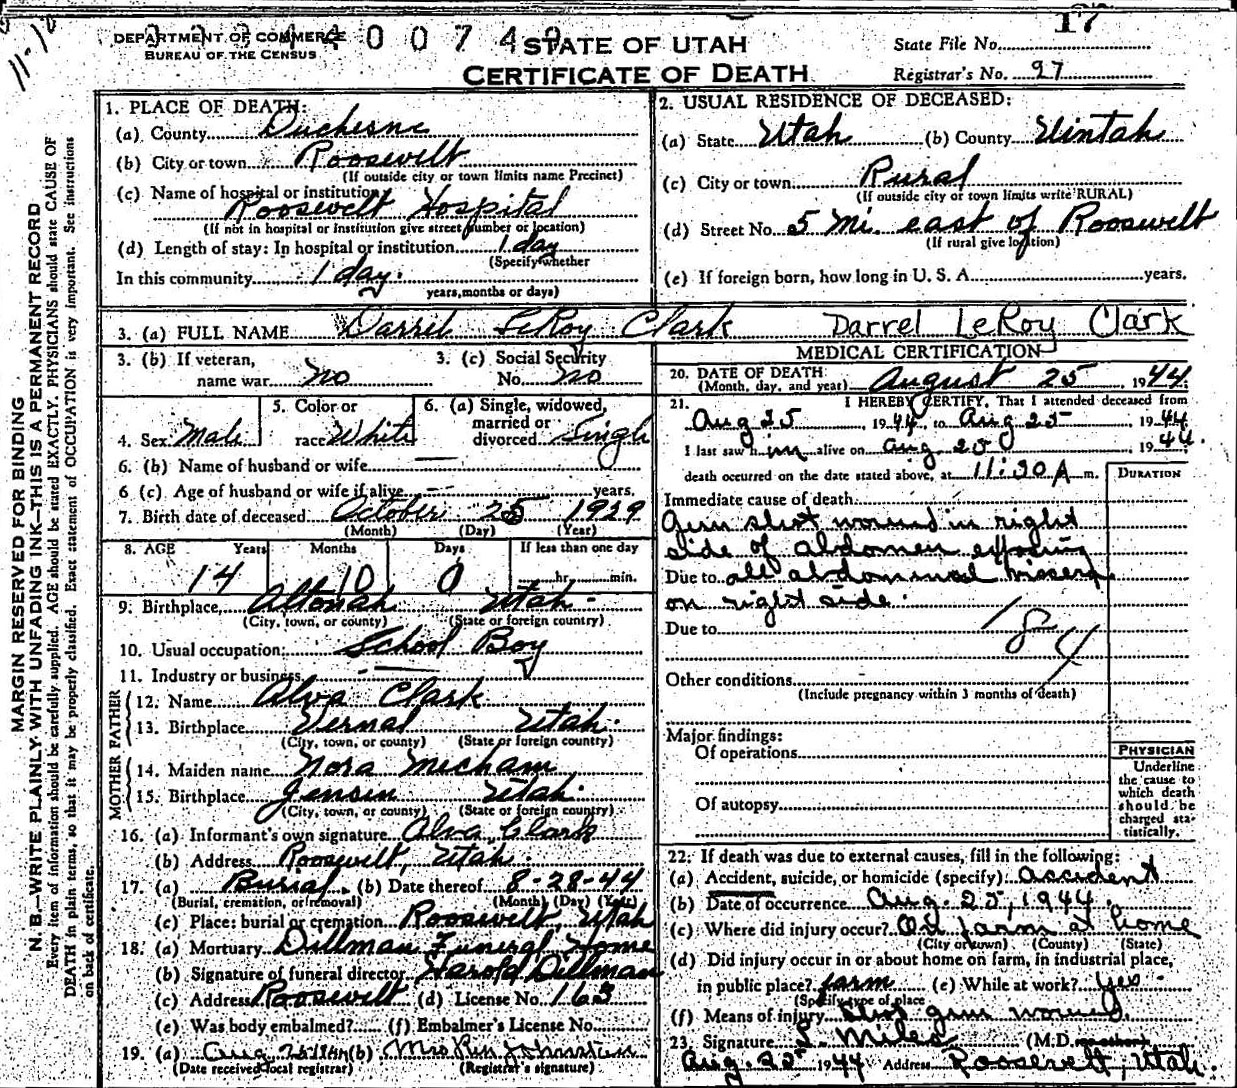 11-10
DEPARTMENT OF COMMERCE
BUREAU OF THE CENSUS
4 4 0 0 7 4 9
STATE OF UTAH
CERTIFICATE OF DEATH
17
State File No.
Registrar's No. 97
MARGIN RESERVED FOR BINDING
N. B.—WRITE PLAINLY WITH UNFADING INK—THIS IS A PERMANENT RECORD
Every item of information should be carefully supplied. AGE should be stated EXACTLY. PHYSICIANS should state CAUSE OF
DEATH in plain terms, so that it may be properly classified. Exact statement of OCCUPATION is very important. See instructions
on back of certificate.
1. PLACE OF DEATH:
(a) County Duchesne
(b) City or town Roosevelt
(If outside city or town limits name Precinct)
(c) Name of hospital or institution
Roosevelt Hospital
(If not in hospital or institution give street number or location)
(d) Length of stay: In hospital or institution 1 day
(Specify whether
In this community 1 day.
years, months or days)
2. USUAL RESIDENCE OF DECEASED:
(a) State Utah (b) County Uintah
(c) City or town Rural
(If outside city or town limits write RURAL)
(d) Street No. 5 Mi. east of Roosevelt
(If rural give location)
(e) If foreign born, how long in U. S. A. years.
3. (a) FULL NAME Darrel LeRoy Clark Darrel LeRoy Clark
3. (b) If veteran,
name war no
3. (c) Social Security
No. no
4. Sex Male
5. Color or
race White
6. (a) Single, widowed,
married or
divorced Single
6. (b) Name of husband or wife —
6 (c) Age of husband or wife if alive — years.
7. Birth date of deceased October 25 1929
(Month) (Day) (Year)
8. AGE Years Months Days If less than one day
14 10 0 hr. min.
9. Birthplace Altonah Utah -
(City, town, or county) (State or foreign country)
10. Usual occupation School Boy
11. Industry or business —
FATHER
12. Name Alva Clark
13. Birthplace Vernal Utah.
(City, town, or county) (State or foreign country)
MOTHER
14. Maiden name Nora Mecham
15. Birthplace Jensen Utah.
(City, town, or county) (State or foreign country)
16. (a) Informant's own signature Alva Clark
(b) Address Roosevelt, Utah.
17. (a) Burial. (b) Date thereof 8-28-44
(Burial, cremation, or removal) (Month) (Day) (Year)
(c) Place: burial or cremation Roosevelt, Utah
18. (a) Mortuary Dillman Funeral Home
(b) Signature of funeral director Harold Dillman
(c) Address Roosevelt (d) License No. 163
(e) Was body embalmed? (f) Embalmer's License No.
19. (a) Aug (b) Mrs Johnston
(Date received local registrar) (Registrar's signature)
MEDICAL CERTIFICATION
20. DATE OF DEATH:
(Month, day, and year) August 25 1944.
21. I HEREBY CERTIFY, That I attended deceased from
Aug 25, 1944, to Aug 25, 1944
I last saw him alive on Aug 25 1944.
death occurred on the date stated above, at 11:30 A m.
DURATION
Immediate cause of death
Gun shot wound in right
side of abdomen
Due to all abdominal viscera
on right side.
Due to
184
Other conditions
(Include pregnancy within 3 months of death)
Major findings:
Of operations
Of autopsy
PHYSICIAN
Underline
the cause to
which death
should be
charged sta-
tistically.
22. If death was due to external causes, fill in the following:
(a) Accident, suicide, or homicide (specify) accident
(b) Date of occurrence Aug. 25, 1944.
(c) Where did injury occur? On farm at home
(City or town) (County) (State)
(d) Did injury occur in or about home on farm, in industrial place,
in public place? farm (e) While at work? yes.
(Specify type of place
(f) Means of injury shot gun wound.
23. Signature S. Miles (M.D. or other)
Aug. 25 1944 Address Roosevelt, Utah.